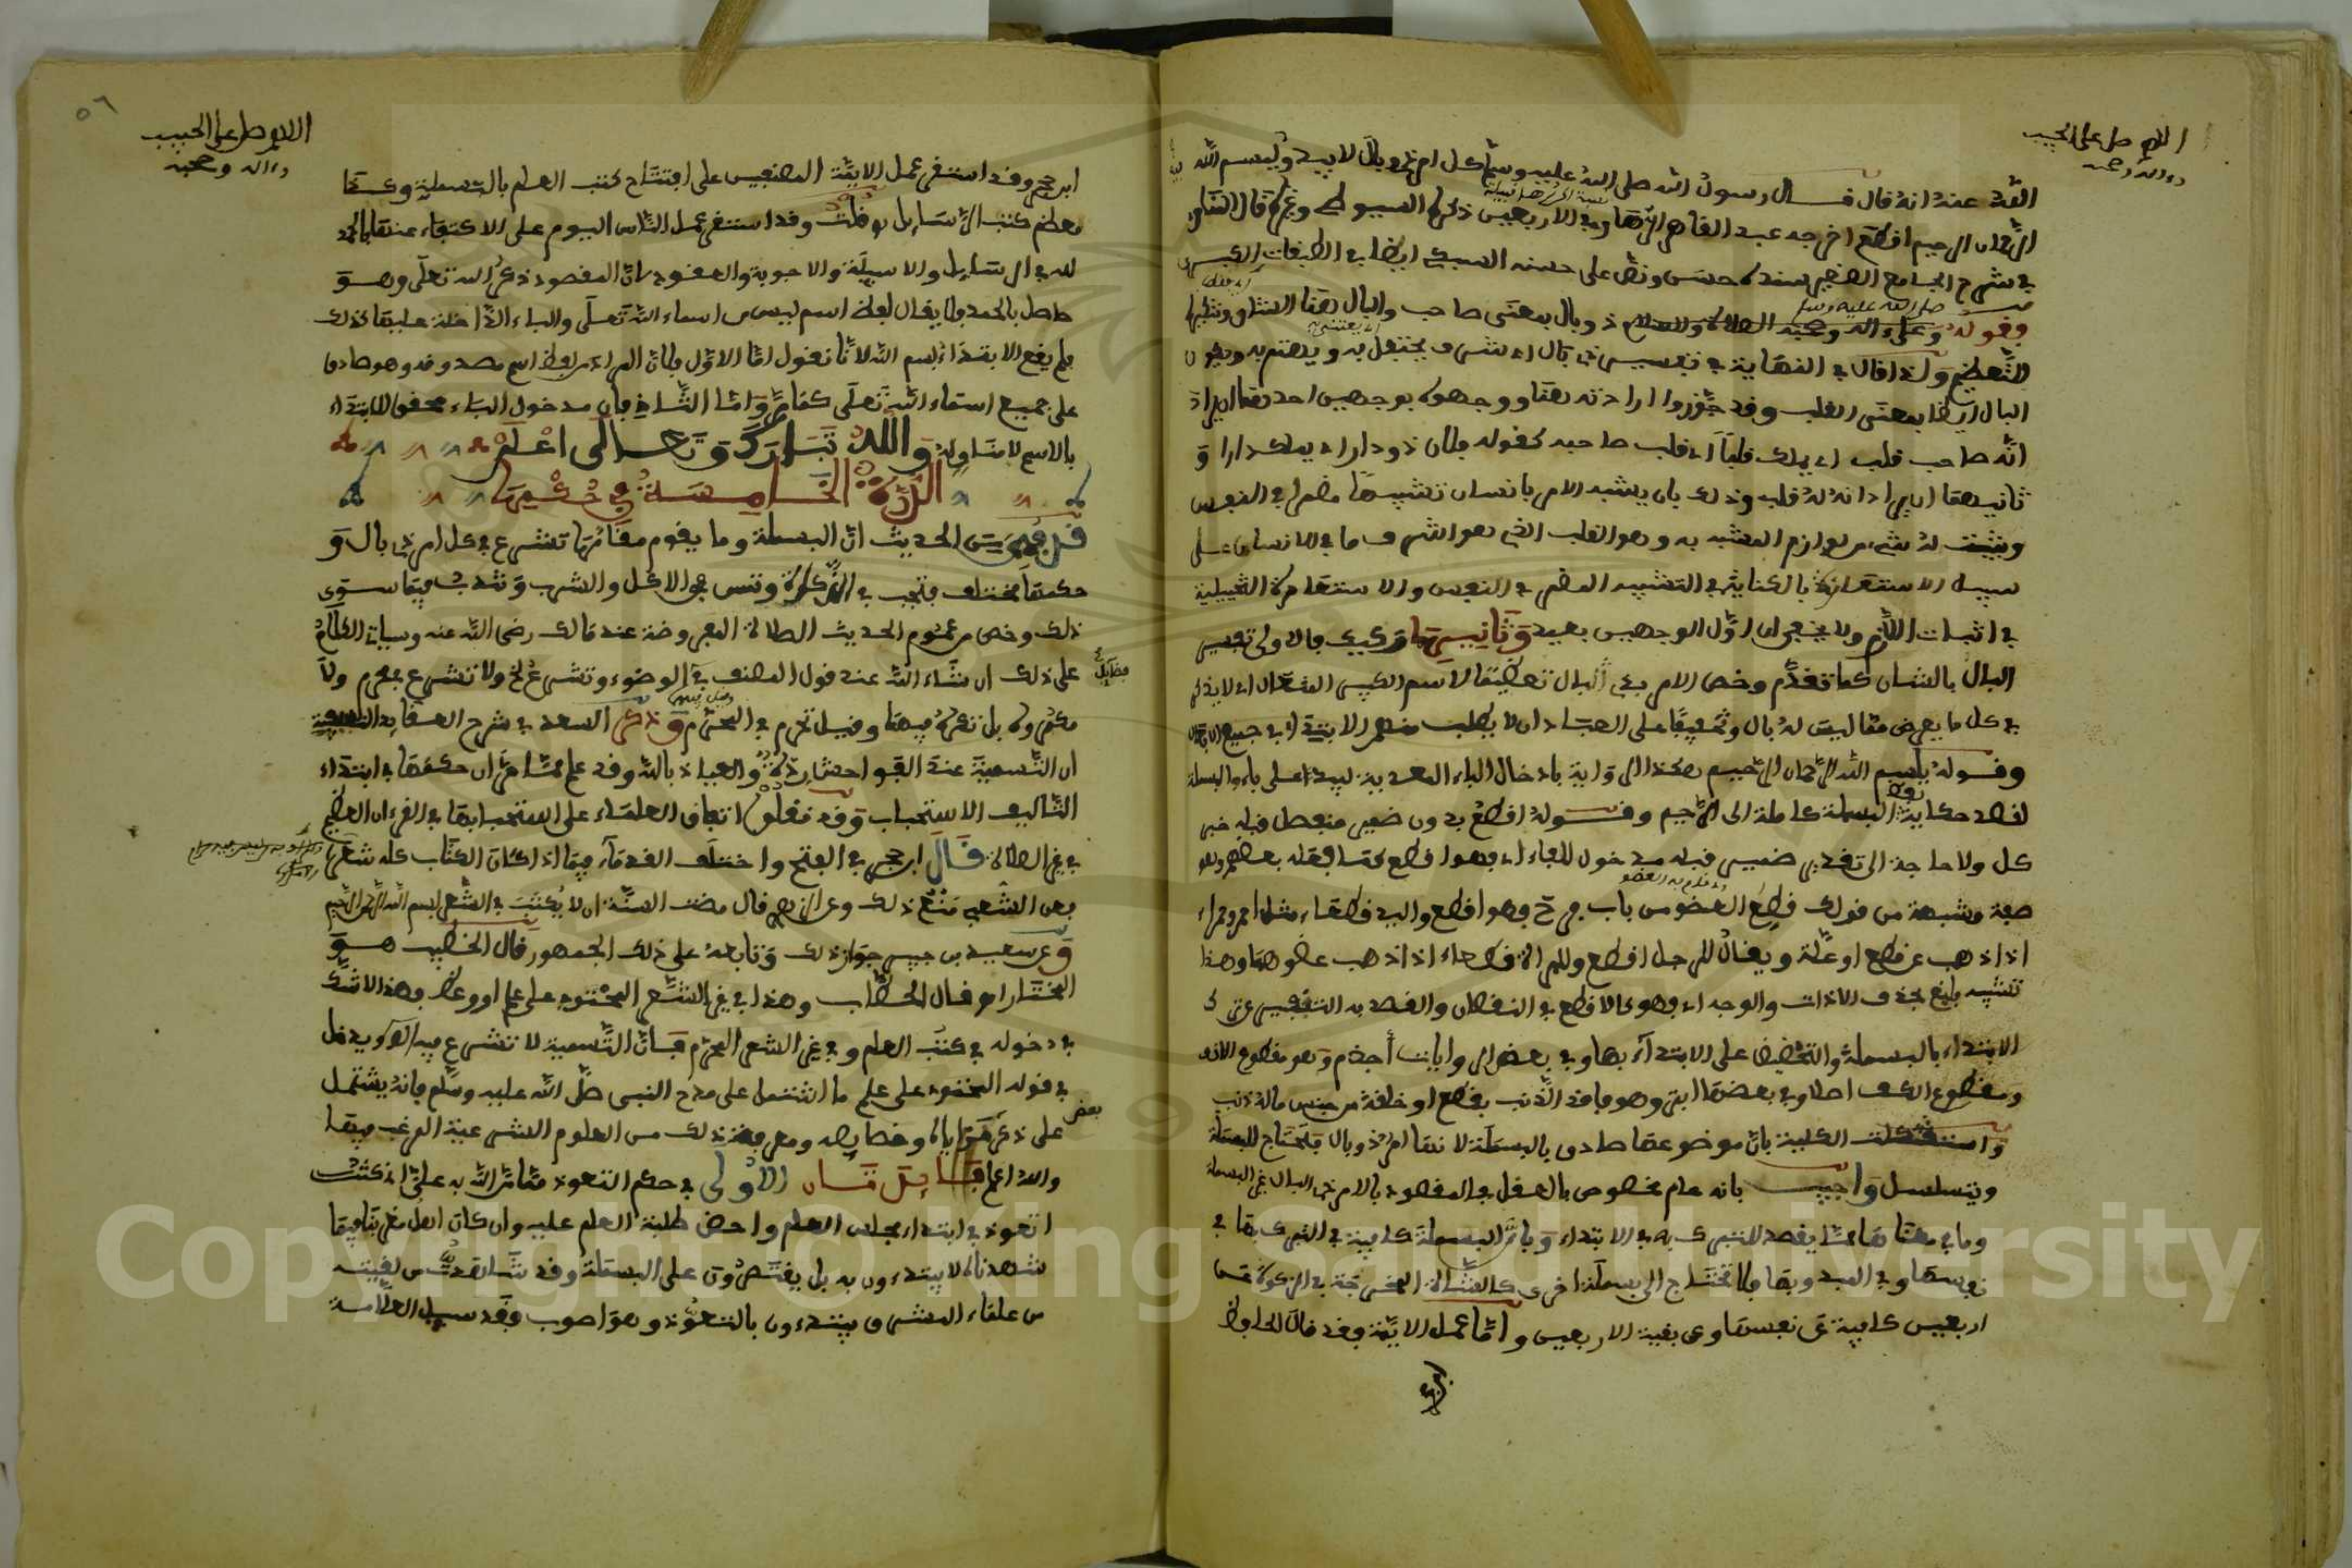 اللهم صل على الحبيب
وءاله وصحبه
الله عنه انه قال قال رسول الله صلى الله عليه وسلم كل امر ذي بال لا يبدو فيه ببسم الله
الرحمان الرحيم اقطع اخرجه عبد القاهر الرهاوي في الاربعين ذكره السيوطي وغيره قال المناوي
في شرح الجامع الصغير بسنده حسن ونص على حسنه السبكي ايضا في الطبقات الكبرى
وقوله صلى الله عليه وسلم وعلى ءاله وصحبه ذو بال بمعنى صاحب والبال هنا الشان وتنكيره
للتعظيم ولذا قال في النهاية في تفسيره ذي بال اي شرف يحتفل به ويهتم به ويكون
البال ايضا بمعنى القلب وقد جوزوا ارادته هنا ووجهوه بوجهين احدهما ان يراد
انه صاحب قلب اي يملك قلبا اي قلب صاحبه كقوله فلان ذو دار اي يملك دارا و
ثانيهما ان يراد انه له قلب وذلك بان يشبه الامر بانسان تشبيها مضمرا في النفس
ويثبت له شيء من لوازم المشبه به وهو القلب الذي هو اشرف ما في الانسان على
سبيل الاستعارة بالكناية في التشبيه المضمر في النفس والاستعارة التخييلية
في اثبات اللازم ولا يخفى ان اول الوجهين بعيد وثانيهما ركيك فالاولى تفسير
البال بالشان كما تقدم وخص الامر بذي البال تعظيما لاسم الكبير المتعال اي لا يذكر
في كل ما يعرض مما ليس له بال وتخفيفا على العباد ان لا يطلب منهم الابتداء في جميع
وقوله باسم الله الرحمان الرحيم هكذا الرواية بادخال الباء المعدية ليبدا على باء البسملة
لقصد حكاية لفظ البسملة كاملة الى الرحيم وقوله اقطع بدون ضمير منفصل قبله خبر
كل ولا حاجة الى تقدير ضمير قبله مدخول للفاء اي فهو اقطع كما فعله بعضهم وهو
صفة مشبهة من قولك قطع العضو من باب فرح فهو اقطع واليد قطعاء مثل احمر وحمراء
اذا ذهب عن قطع او علة ويقال للرجل اقطع وللمراة قطعاء اذا ذهب عضوهما وهذا
تشبيه بليغ بحذف الاداة والوجه اي فهو كالاقطع في النقصان والقصد به التنفير عن ترك
الابتداء بالبسملة والتحضيض على الابتداء بها وفي بعض الروايات اجذم وهو مقطوع الانف
ومقطوع الكف اصلا وفي بعضها ابتر وهو فاقد الذنب بقطع او خلقة من جنس ماله ذنب
واستشكلت الكلية بان موضوعها صادق بالبسملة لانها امر ذو بال فتحتاج للبسملة
ويتسلسل واجيب بانه عام مخصوص بالعقل فالمقصود بالامر ذي البال غير البسملة
وما في معناها مما يقصد للتبرك به في الابتداء وبان البسملة كافية في التبرك بها في
نفسها وفي المبدو بها فلا تحتاج الى بسملة اخرى كالشاة المخرجة في الزكاة عن
اربعين كافية عن نفسها وعن بقية الاربعين واما عمل الايمة فقد قال الحافظ
٥٦
اللهم صل على الحبيب
وءاله وصحبه
ابن حجر وقد استقر عمل الايمة المصنفين على افتتاح كتب العلم بالبسملة وكذا
معظم كتب الرسايل قلت وقد استقر عمل الناس اليوم على الاكتفاء عنها بالحمد
لله في الرسايل والاسيلة والاجوبة والعقود لان المقصود ذكر الله تعالى وهو
حاصل بالحمد ولا يقال لفظ اسم ليس من اسماء الله تعالى والباء الداخلة عليها كذلك
فلم يقع الابتداء ببسم الله لانا نقول اما الاول فلان المراد من لفظ اسم مصدوقه وهو صادق
على جميع اسماء الله تعالى كما مر واما الثاني فبان مدخول الباء محقق الابتداء
بالاسم لا منافيه والله تبارك وتعالى اعلم
الدرة الخامسة في حكمها
قد فهمت من الحديث ان البسملة وما يقوم مقامها تشرع في كل امر ذي بال و
حكمها مختلف فتجب في الذكاة وتسن في الاكل والشرب وتندب فيما سوى
ذلك وخص من عموم الحديث الصلاة المفروضة عند مالك رضي الله عنه وسياتي الكلام
على ذلك ان شاء الله عند قول المصنف في فضايل الوضوء وتشرع الخ ولا تشرع بمحرم ولا
مكروه بل تكره فيهما وقيل تحرم في المحرم وذكر السعد في شرح العقايد النسفية
ان التسمية عند الفواحش ردة والعياذ بالله وقد علم مما مر ان حكمها في ابتداء
التاليف الاستحباب وقد نقلوا اتفاق العلماء على استحبابها في القرءان العظيم
في غير الصلاة قال ابن حجر في الفتح واختلف القدماء فيما اذا كان الكتاب كله شعرا
فعن الشعبي منع ذلك وعن الزهري قال مضت السنة ان لا يكتب في الشعر بسم الله الرحمن الرحيم
وعن سعيد بن جبير جواز ذلك وتابعه على ذلك الجمهور قال الخطيب هو
المختار اهـ قال الحطاب وهذا في غير الشعر المحتوي على علم او وعظ فهذا لا شك
في دخوله في كتب العلم وفي غير الشعر المحرم فان التسمية لا تشرع فيه اهـ ويدخل
في قوله المحتوي على علم ما اشتمل على مدح النبي صلى الله عليه وسلم فانه يشتمل
على ذكر بعض مزاياه وخصايصه ومعرفة ذلك من العلوم الشرعية المرغب فيها
والله اعلم فايدتان الاولى في حكم التعوذ مما من الله به علي اذ كنت
اتعوذ في ابتداء مجلس العلم واحض طلبة العلم عليه وان كان اهل مغربنا فيما
شهدناه لا يبتدءون به بل يقتصرون على البسملة وقد شاهدت من لقيته
من علماء المشرق يبتدءون بالتعوذ وهو اصوب وقد سيل العلامة